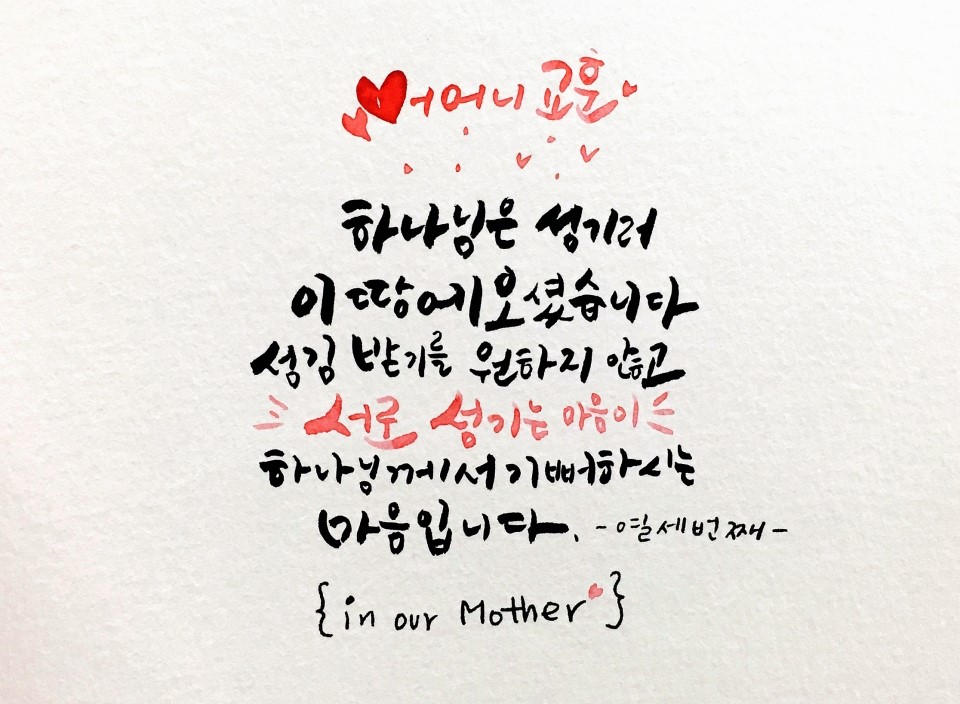 어머니 교훈
하나님은 섬기러
이 땅에 오셨습니다
섬김 받기를 원하지 않고
서로 섬기는 마음이
하나님께서 기뻐하시는
마음입니다. -열세번째-
{in our Mother}